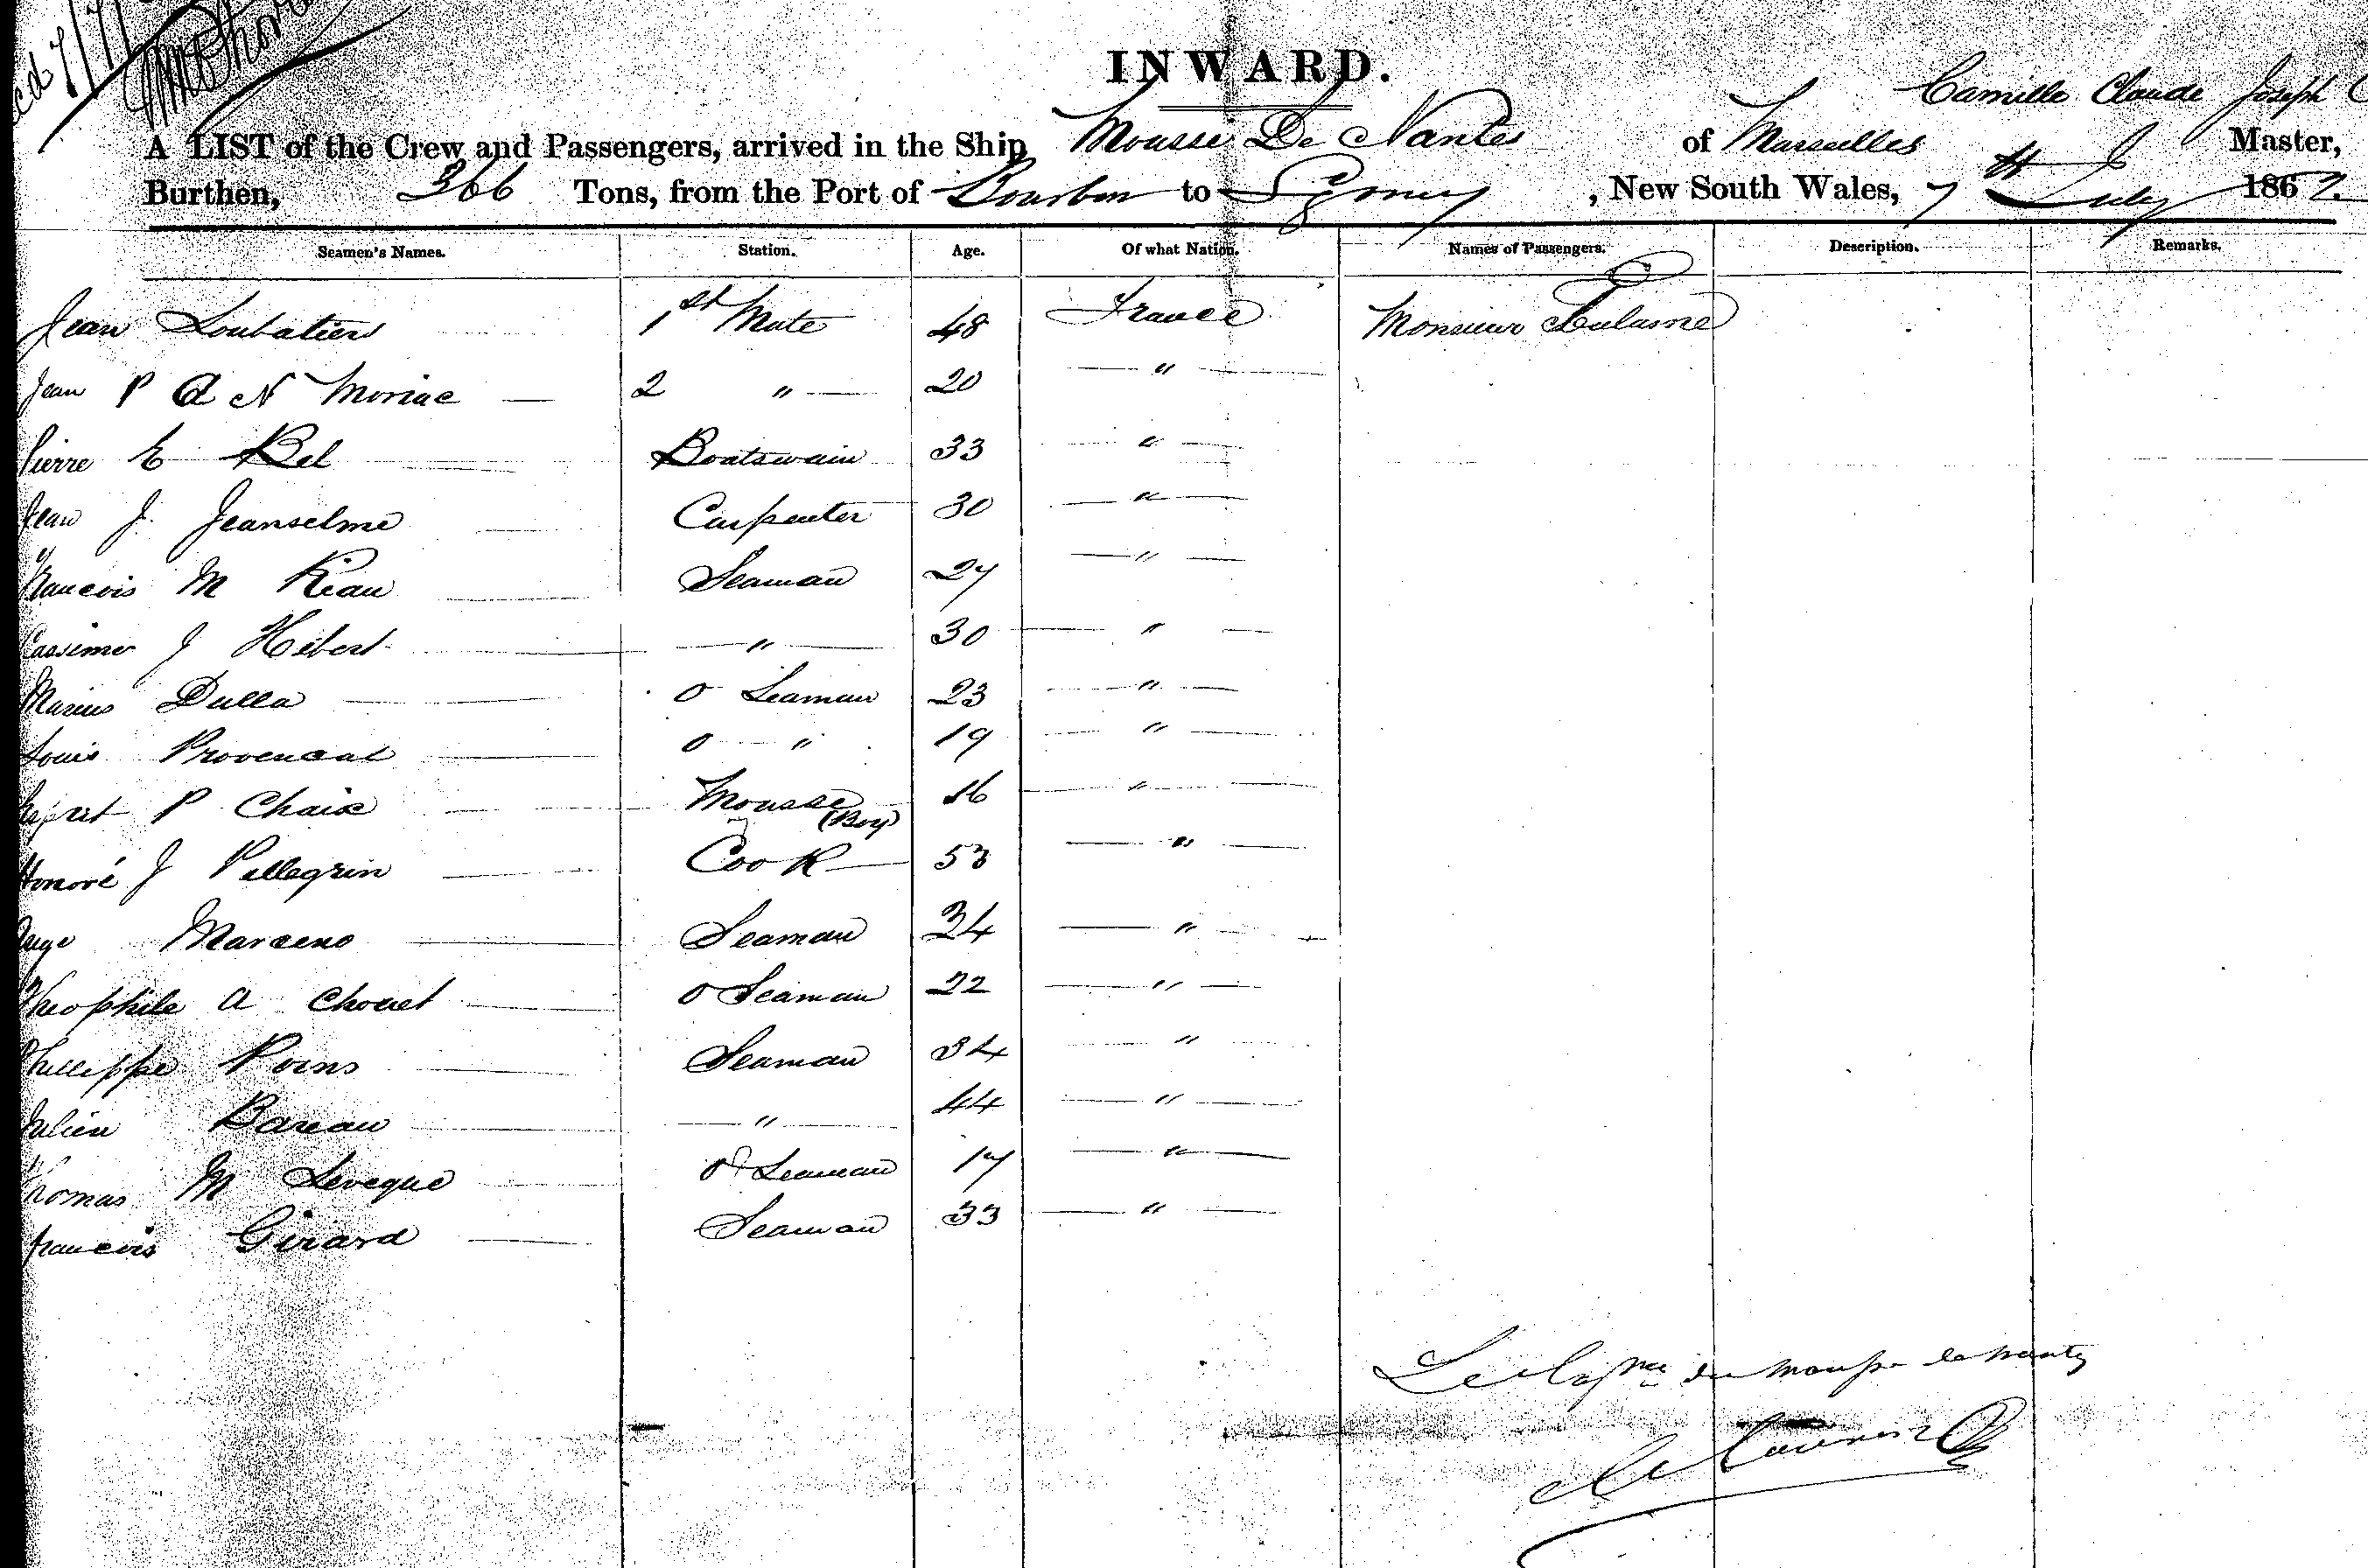 INWARD.
Camille Claude Joseph
A LIST of the Crew and Passengers, arrived in the Ship Mousse De Nantes of Marseilles Master,
Burthen, 366 Tons, from the Port of Bourbon to Sydney, New South Wales, 7th July 1862.
Seamen's Names. Station. Age. Of what Nation. Names of Passengers. Description. Remarks.
Jean Loubatier 1st Mate 48 France Monsieur
Jean P A N Moriac — 2 " 20 "
Pierre E Bel Boatswain 33 "
Jean J. Jeanselme Carpenter 30 "
Francois M Riau Seaman 27 "
Cassimer J Hebert " 30 "
Marius Dulla O Seaman 23 "
Louis Provencal O " 19 "
P Chaix Mousse (Boy) 16 "
Honoré J Pellegrin Cook 53 "
Ange Marceno Seaman 34 "
Theophile A Chouet O Seaman 22 "
Phillippe Poins Seaman 34 "
Julien Bareau " 44 "
Thomas M Leveque O Seaman 17 "
Francois Girard Seaman 33 "